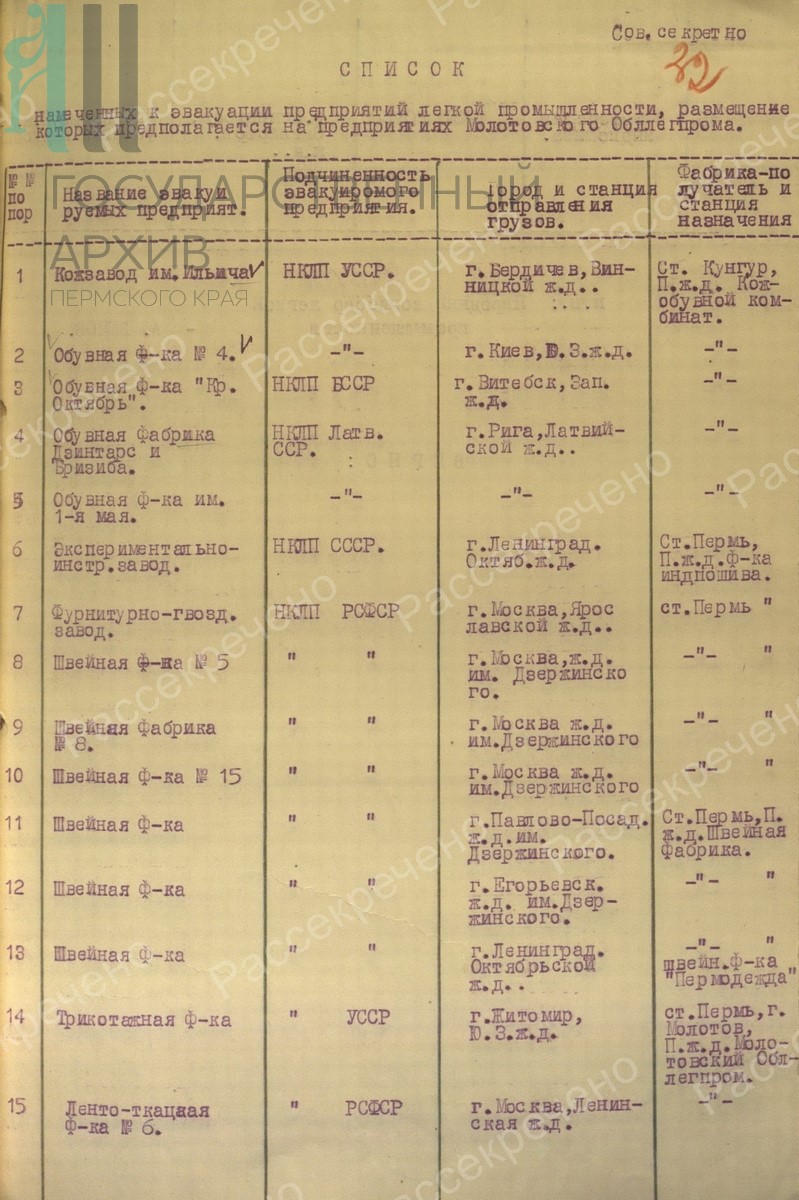 Сов.секретно
32
СПИСОК
намеченных к эвакуации предприятий легкой промышленности, размещение
которых предполагается на предприятиях Молотовского Обллегпрома.
№ №
по
пор
Название эвакуи
руемых предприят.
Подчиненность
эвакуиромого
предприятия.
город и станция
отправления
грузов.
Фабрика-по
лучатель и
станция
назначения
ГОСУДАРСТВЕННЫЙ
АРХИВ
ПЕРМСКОГО КРАЯ
1
Кожзавод им.Ильича
НКЛП УССР.
г.Бердичев,Вин-
ницкой ж.д..
Ст. Кунгур,
П.ж.д. Кож-
обувной ком-
бинат.
2
Обувная ф-ка № 4.
-"-
г.Киев,Ю.З.ж.д.
-"-
3
Обувная ф-ка "Кр.
Октябрь".
НКЛП БССР
г.Витебск,Зап.
ж.д.
-"-
4
Обувная фабрика
Дзинтарс и
Бризиба.
НКЛП Латв.
ССР.
г.Рига,Латвий-
ской ж.д..
-"-
5
Обувная ф-ка им.
1-я мая.
-"-
-"-
-"-
6
Экспериментально-
инстр.завод.
НКЛП СССР.
г.Ленинград.
Октяб.ж.д.
Ст.Пермь,
П.ж.д.ф-ка
индпошива.
7
Фурнитурно-гвозд.
завод.
НКЛП РСФСР
г.Москва,Ярос
лавской ж.д..
ст.Пермь "
8
Швейная ф-ка № 5
" "
г.Москва,ж.д.
им. Дзержинско
го.
-"- "
9
Швейная фабрика
№ 8.
" "
г.Москва ж.д.
им.Дзержинского
-"- "
10
Швейная ф-ка № 15
" "
г.Москва ж.д.
им.Дзержинского
-"- "
11
Швейная ф-ка
" "
г.Павлово-Посад.
ж.д.им.
Дзержинского.
Ст.Пермь,П.
ж.д.Швейная
Фабрика.
12
Швейная ф-ка
" "
г.Егорьевск.
ж.д. им.Дзер-
жинского.
-"- "
13
Швейная ф-ка
" "
г.Ленинград.
Октябрьской
ж.д..
-"- "
швейн.ф-ка
"Пермодежда"
14
Трикотажная ф-ка
" УССР
г.Житомир,
Ю.З.ж.д.
ст.Пермь,г.
Молотов,
П.ж.д.Моло-
товский Обл-
легпром.
15
Ленто-ткацкая
Ф-ка № 6.
" РСФСР
г.Москва,Ленин-
ская ж.д.
-"-
Рассекречено